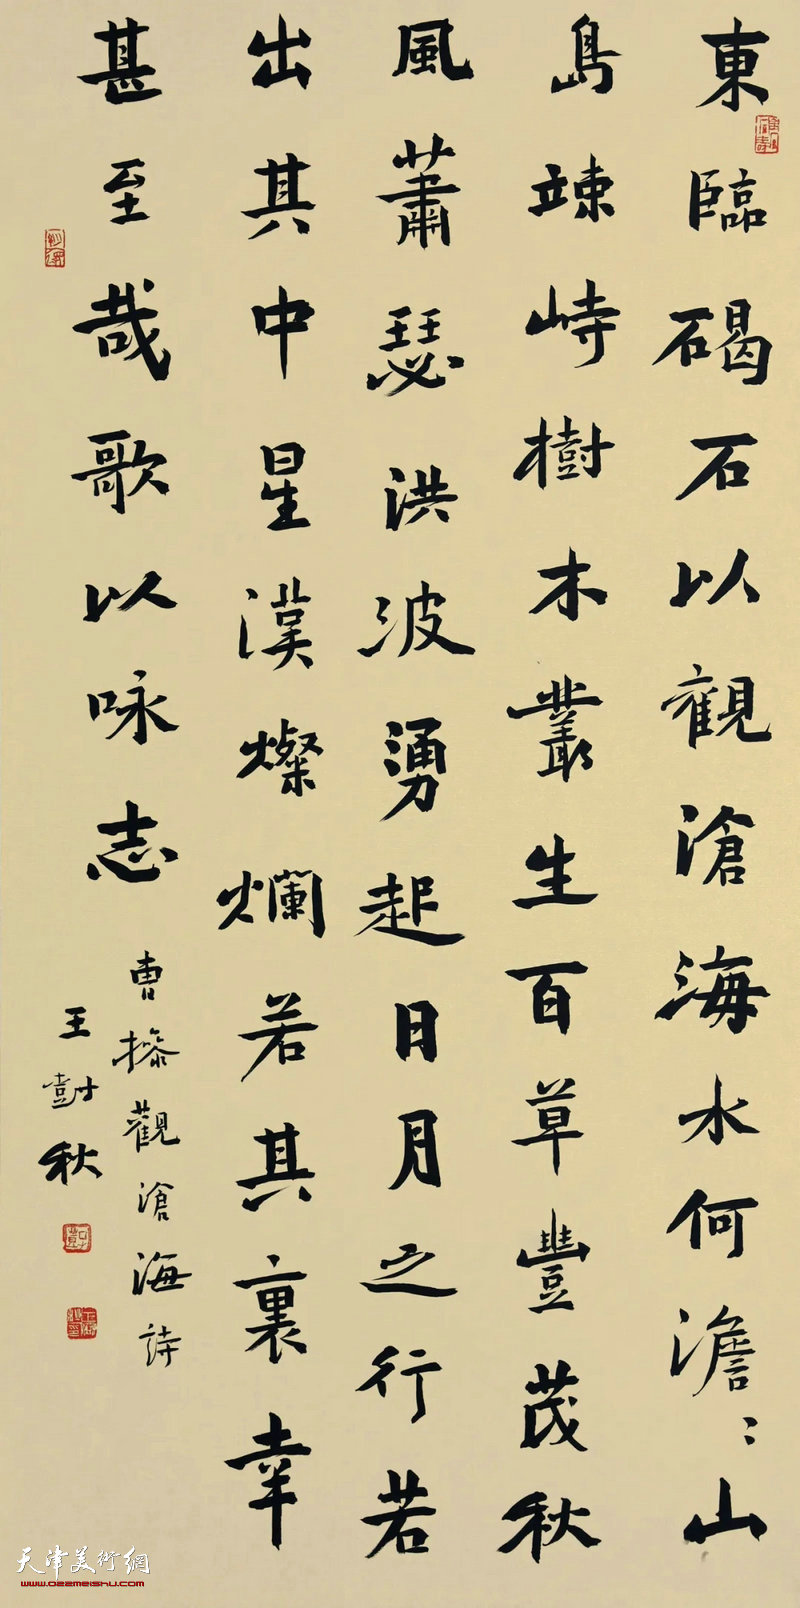 東臨碣石以觀滄海水何澹〻山
島竦峙樹木叢生百草豐茂秋
風蕭瑟洪波湧起日月之行若
出其中星漢燦爛若其裏幸
甚至哉歌以咏志
曹操觀滄海詩
王尌秋
天津美術網
www.022meishu.com